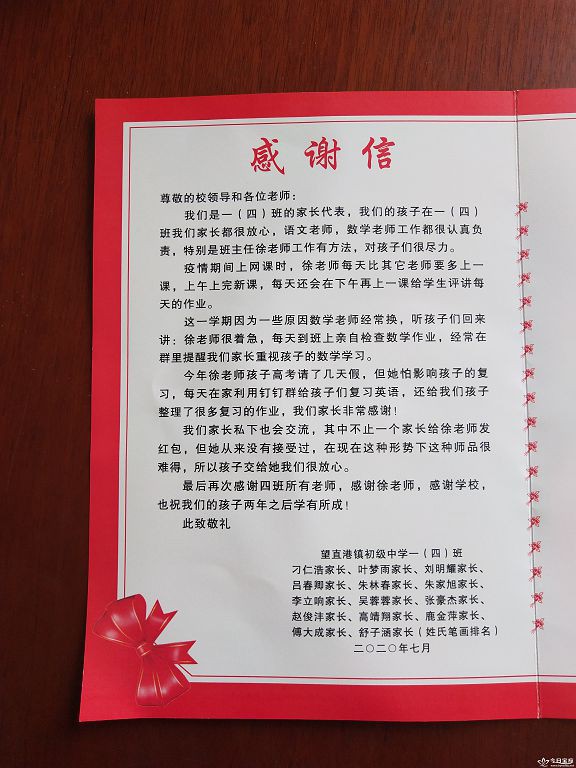 感谢信
尊敬的校领导和各位老师：
我们是一（四）班的家长代表，我们的孩子在一（四）
班我们家长都很放心，语文老师，数学老师工作都很认真负
责，特别是班主任徐老师工作有方法，对孩子们很尽力。
疫情期间上网课时，徐老师每天比其它老师要多上一
课，上午上完新课，每天还会在下午再上一课给学生评讲每
天的作业。
这一学期因为一些原因数学老师经常换，听孩子们回来
讲：徐老师很着急，每天到班上亲自检查数学作业，经常在
群里提醒我们家长重视孩子的数学学习。
今年徐老师孩子高考请了几天假，但她怕影响孩子的复
习，每天在家利用钉钉群给孩子们复习英语，还给我们孩子
整理了很多复习的作业，我们家长非常感谢！
我们家长私下也会交流，其中不止一个家长给徐老师发
红包，但她从来没有接受过，在现在这种形势下这种师品很
难得，所以孩子交给她我们很放心。
最后再次感谢四班所有老师，感谢徐老师，感谢学校，
也祝我们的孩子两年之后学有所成！
此致敬礼
望直港镇初级中学一（四）班
刁仁浩家长、叶梦雨家长、刘明耀家长、
吕春卿家长、朱林春家长、朱家旭家长、
李立响家长、吴蓉蓉家长、张豪杰家长、
赵俊沣家长、高靖翔家长、鹿金萍家长、
傅大成家长、舒子涵家长（姓氏笔画排名）
二〇二〇年七月
今日宝应